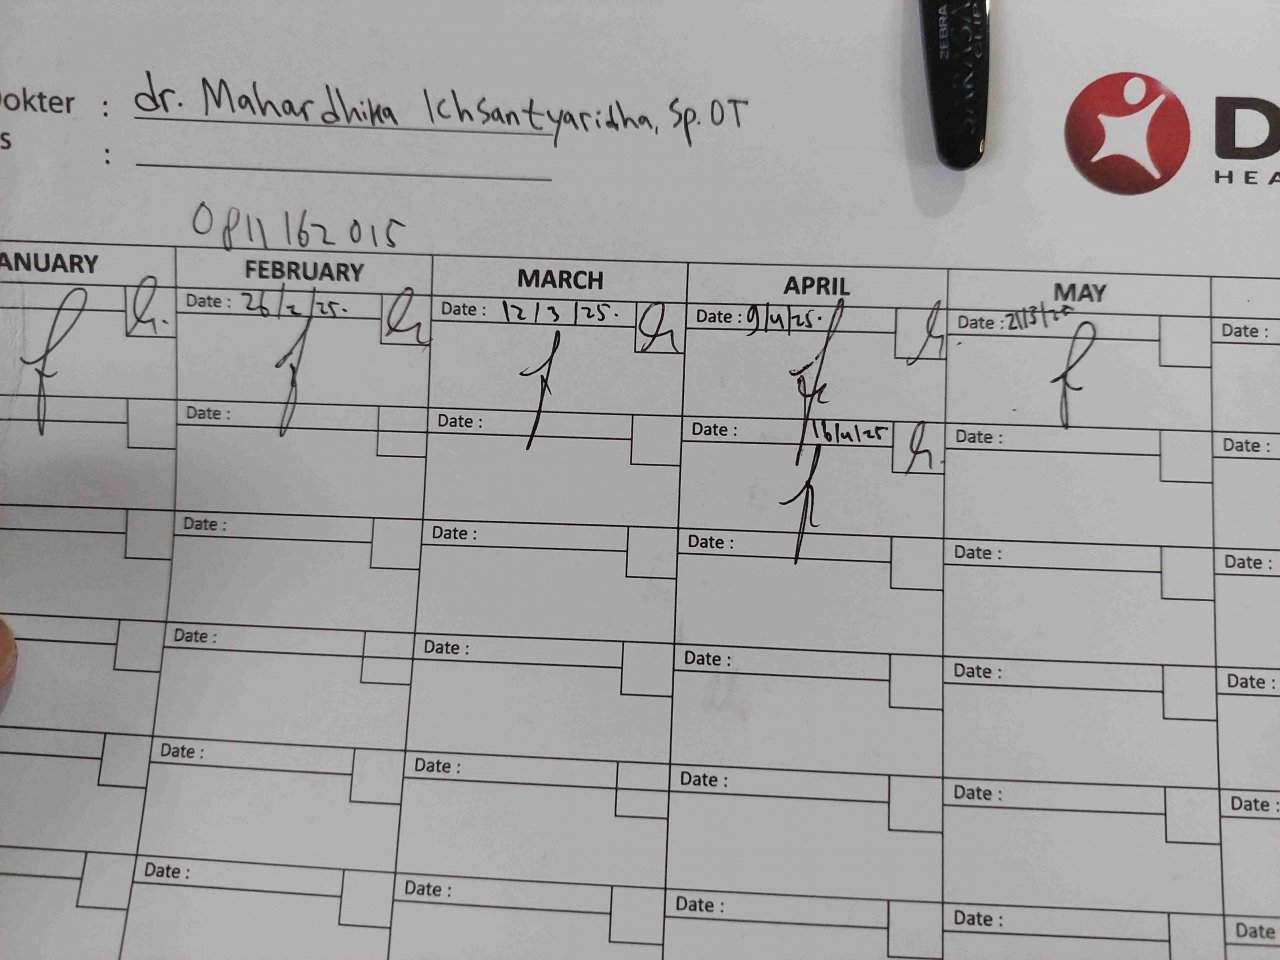 okter : dr. Mahardhika Ichsantyaridha, Sp.OT
s :
ZEBRA
D
HEA
0811162015
ANUARY FEBRUARY MARCH APRIL MAY
Date : 26/2/25. Date : 12/3/25. Date : 9/4/25. Date : 21/3/25 Date :
Date : Date : Date : 16/4/25 Date : Date :
Date : Date : Date : Date : Date :
Date : Date : Date : Date : Date :
Date : Date : Date : Date : Date :
Date : Date : Date : Date : Date